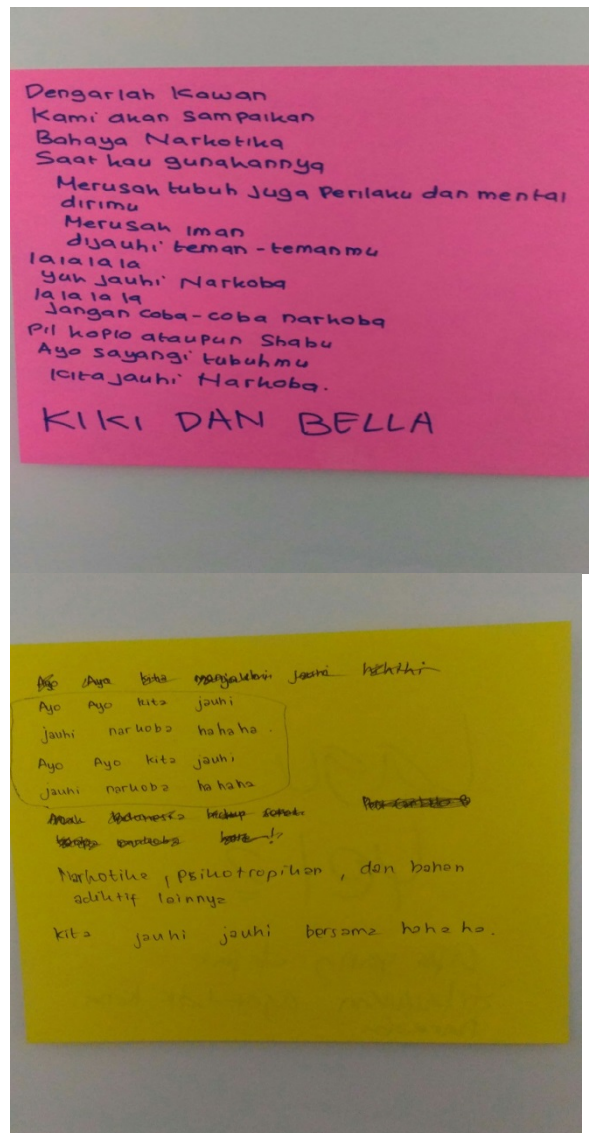 Dengarlah Kawan
Kami akan sampaikan
Bahaya Narkotika
Saat kau gunakannya
Merusak tubuh juga Perilaku dan mental
dirimu
Merusak Iman
dijauhi teman-temanmu
lalalala
yuk jauhi Narkoba
la la la la
Jangan coba-coba narkoba
Pil koplo ataupun Shabu
Ayo sayangi tubuhmu
Kita jauhi Narkoba.
KIKI DAN BELLA
Ayo kita
Ayo Ayo kita jauhi
jauhi narkoba hahaha.
Ayo Ayo kita jauhi
jauhi narkoba hahaha
Indonesia hidup
Narkotika, psikotropikan, dan bahan
adiktif lainnya
kita jauhi jauhi bersama hahaha.